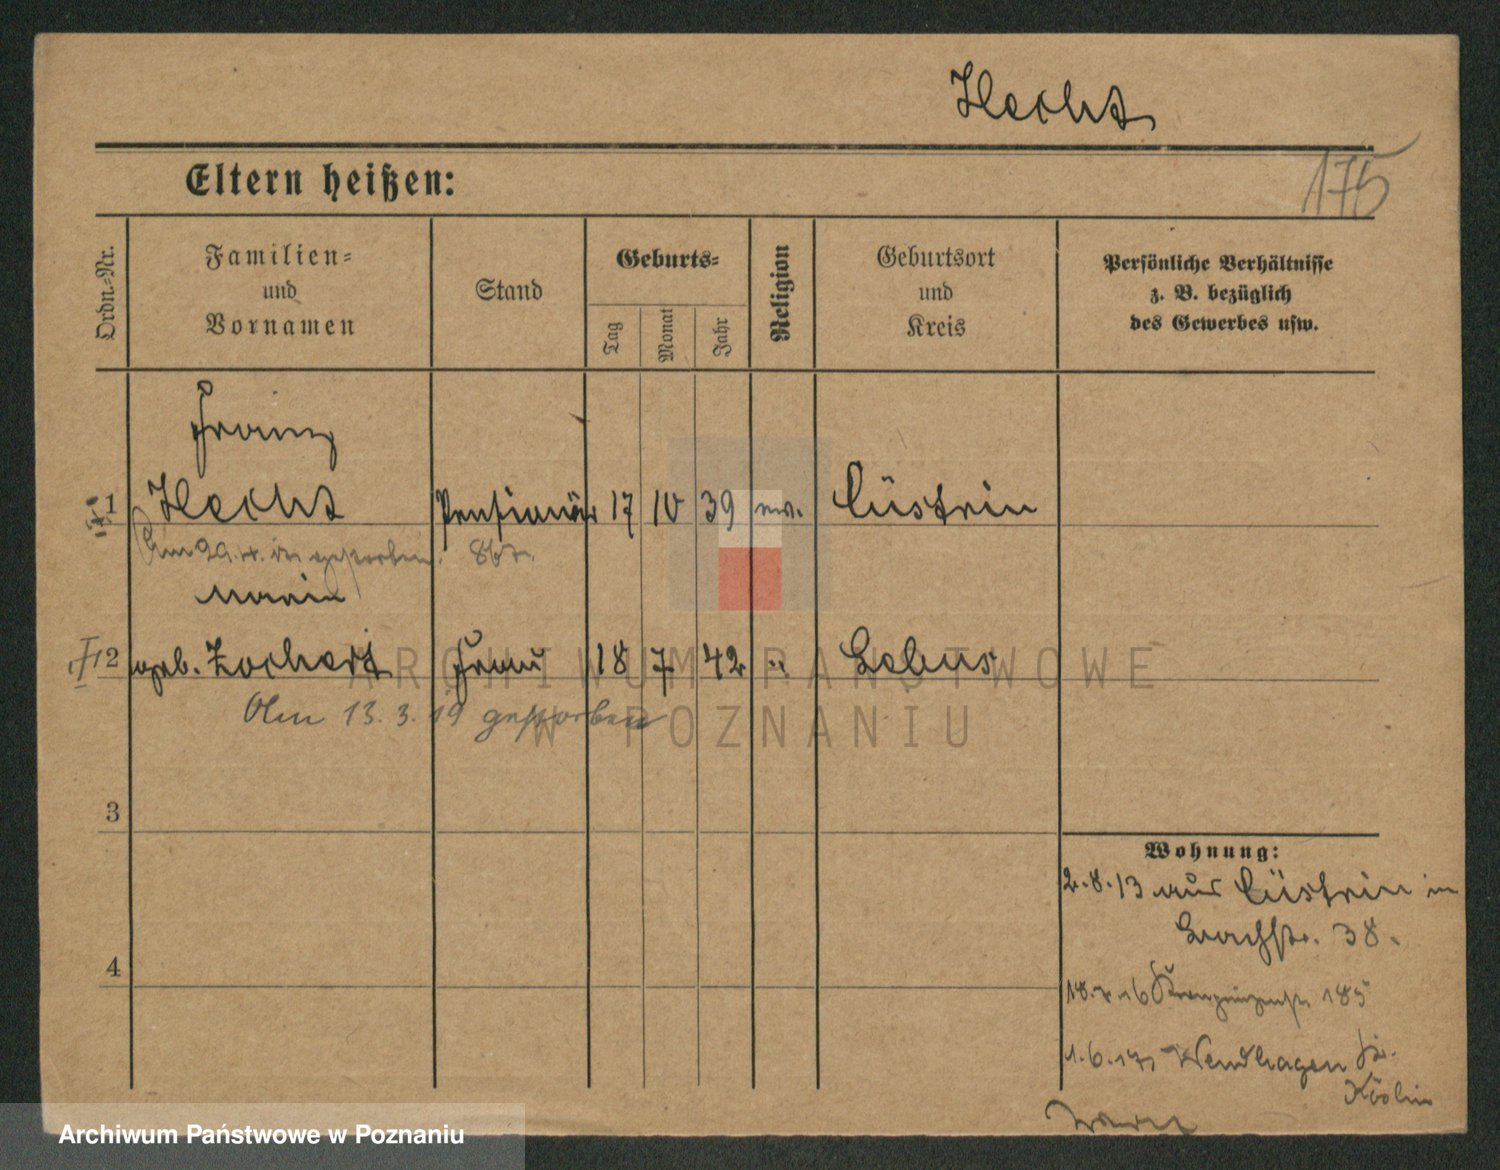 Hecht
175
Eltern heißen:
Ordn.-Nr.
Familien- und Vornamen
Stand
Geburts-
Tag
Monat
Jahr
Religion
Geburtsort und Kreis
Persönliche Verhältnisse z. B. bezüglich des Gewerbes usw.
Franz
1 Hecht Pensionär 17 10 39 ev. Cüstrin
gestorben.
Marie
2 geb. Zochert Frau 18 7 42 " Lebus
Am 13. 3. 19 gestorben
3
4
Wohnung:
2.8.13 aus Cüstrin in
Bachstr. 38.
18.7.16 Kronprinzenstr. 185
1.6.17 Wendhagen Kr.
Köslin
ARCHIWUM PAŃSTWOWE
W POZNANIU
Archiwum Państwowe w Poznaniu